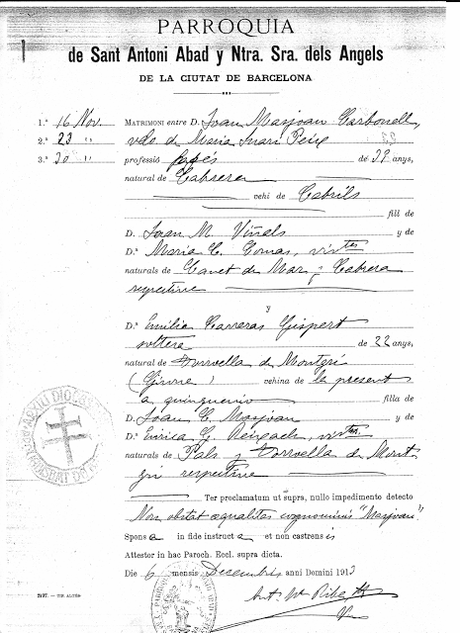 PARROQUIA
de Sant Antoni Abad y Ntra. Sra. dels Angels
DE LA CIUTAT DE BARCELONA
1.ª 16 Nov.
2.ª 23 "
3.ª 30 "
MATRIMONI entre D. Joan Masjoan Carbonell,
vdo de Maria
professió de 39 anys,
natural de Cabrera
vehí de Cabrils
fill de
D. Joan M. Viñels y de
D.ª Maria C. Comas,
naturals de Canet de Mar y Cabrera
respective
y
D.ª Emilia Carreras Gispert
soltera de 22 anys,
natural de Torroella de Montgrí
vehina de la present
a quinquenio filla de
D. Joan C. Masjoan y de
D.ª Enrica G.
naturals de Pals y Torroella de Mont
grí respective
Ter proclamatum ut supra, nullo impedimento detecto
Non obstat aequalitas cognominis "Masjoan"
Spons a in fide instruct a et non castrens is
Attestor in hac Paroch. Eccl. supra dicta.
Die 6 mensis Decembris anni Domini 1913